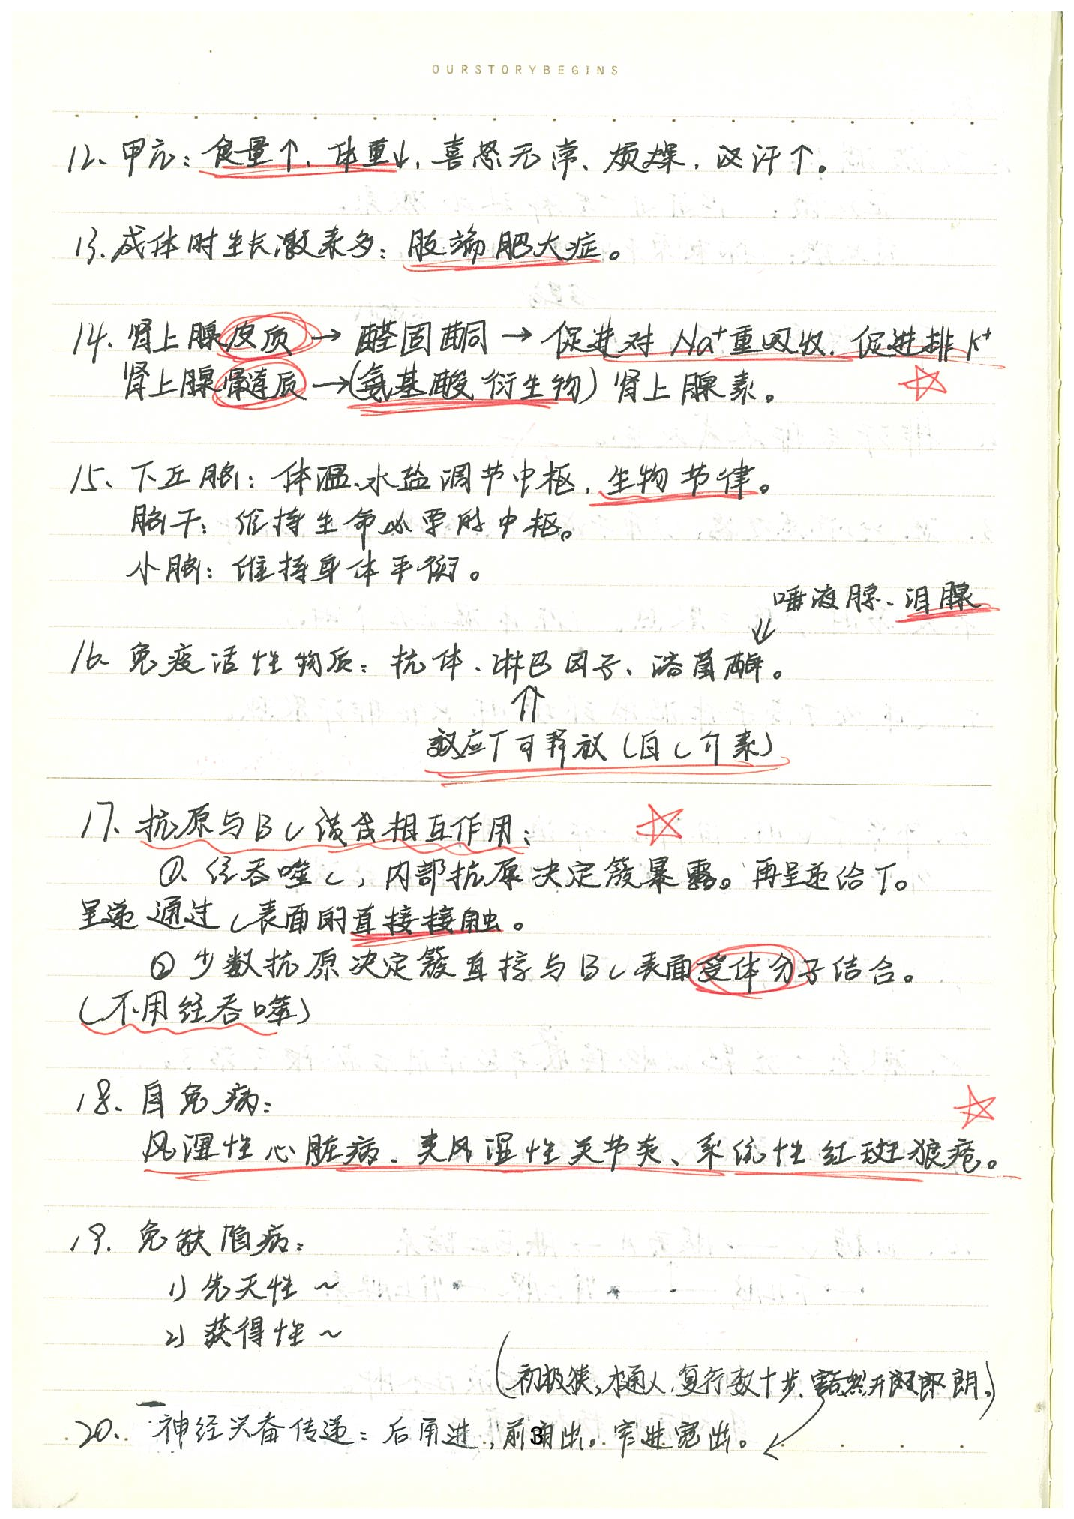 OURSTORYBEGINS
12. 甲亢：食量↑、体重↓，喜怒无常、烦燥，汉汗↑。
13. 成体时生长激素多：肢端肥大症。
14. 肾上腺皮质→醛固酮→促进对Na⁺重吸收，促进排K⁺
肾上腺髓质→(氨基酸衍生物)肾上腺素。
15. 下丘脑：体温、水盐调节中枢，生物节律。
脑干：维持生命必要的中枢。
小脑：维持身体平衡。
唾液腺、泪腺
16. 免疫活性物质：抗体、淋巴因子、溶菌酶。
效应T可释放(白C介素)
17. 抗原与BC结合相互作用：
①. 经吞噬C，内部抗原决定簇暴露。再呈递给T。
呈递通过C表面的直接接触。
② 少数抗原决定簇直接与BC表面受体分子结合。
(不用经吞噬)
18. 自免病：
风湿性心脏病、类风湿性关节炎、系统性红斑狼疮。
19. 免缺陷病：
1) 先天性～
2) 获得性～
(初极狭，才通人，复行数十步，豁然开朗。)
20. 神经兴奋传递：后角进，前角出。窄进宽出。
3